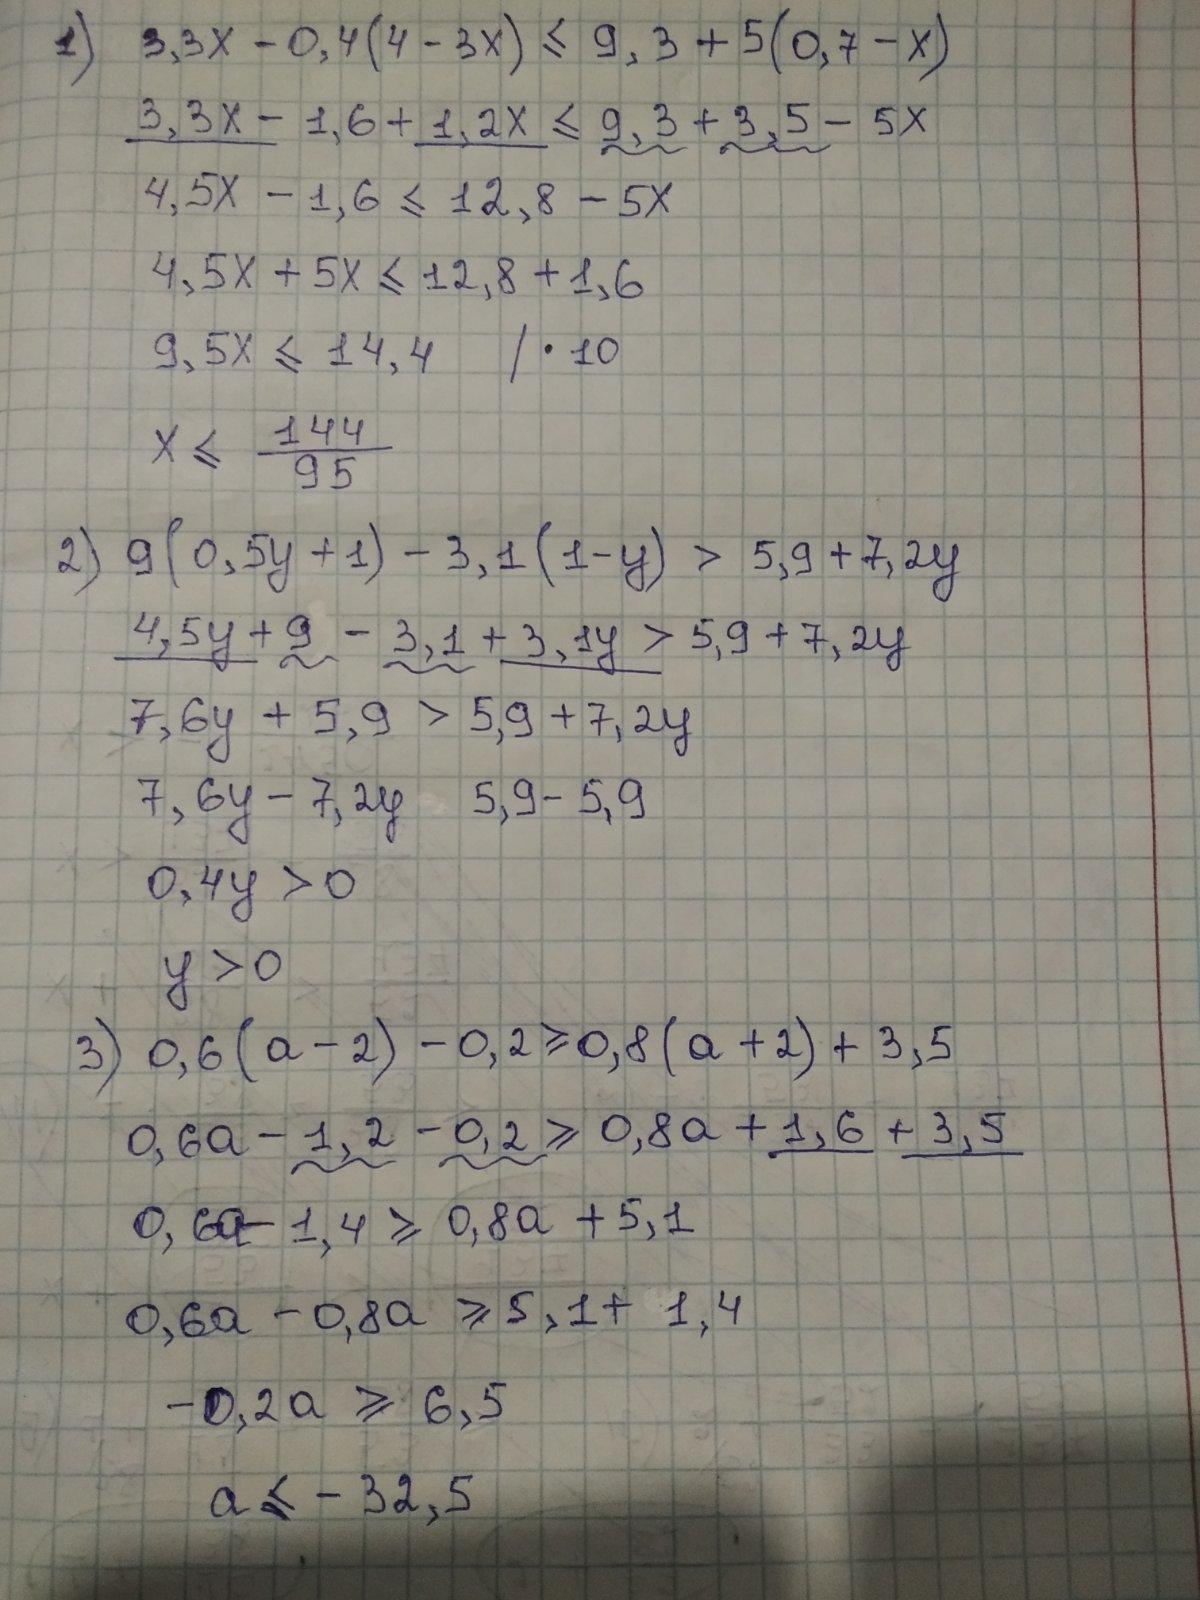 1) 3,3x - 0,4(4 - 3x) ⩽ 9,3 + 5(0,7 - x)
3,3x - 1,6 + 1,2x ⩽ 9,3 + 3,5 - 5x
4,5x - 1,6 ⩽ 12,8 - 5x
4,5x + 5x ⩽ 12,8 + 1,6
9,5x ⩽ 14,4 / · 10
x ⩽ 144/95
2) 9(0,5y + 1) - 3,1(1 - y) > 5,9 + 7,2y
4,5y + 9 - 3,1 + 3,1y > 5,9 + 7,2y
7,6y + 5,9 > 5,9 + 7,2y
7,6y - 7,2y 5,9 - 5,9
0,4y > 0
y > 0
3) 0,6(a - 2) - 0,2 ⩾ 0,8(a + 2) + 3,5
0,6a - 1,2 - 0,2 ⩾ 0,8a + 1,6 + 3,5
0,6a - 1,4 ⩾ 0,8a + 5,1
0,6a - 0,8a ⩾ 5,1 + 1,4
-0,2a ⩾ 6,5
a ⩽ - 32,5